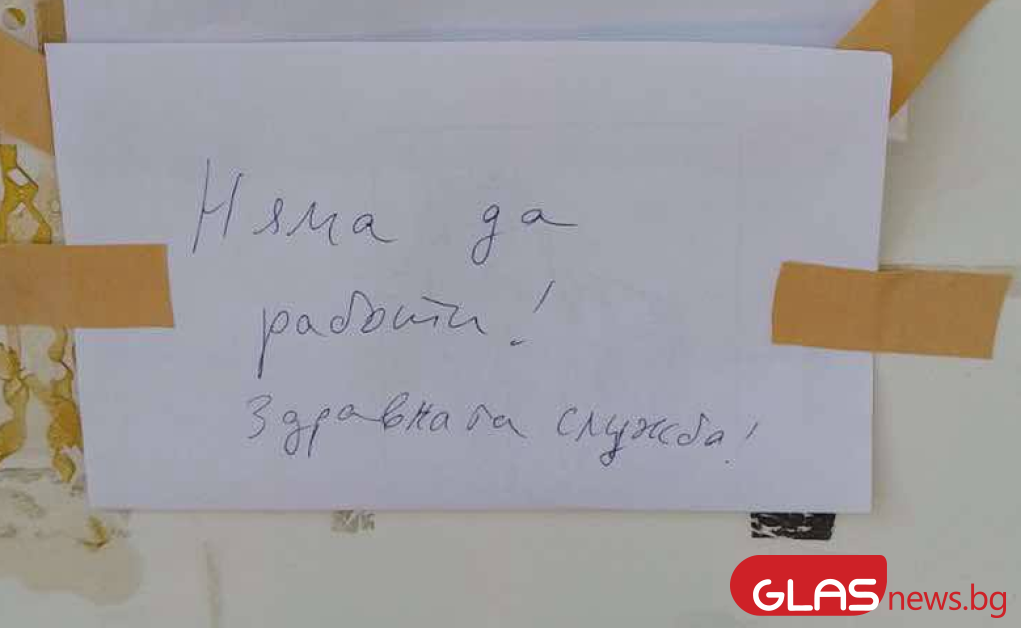 Няма да
работи!
Здравната служба!
GLASnews.bg